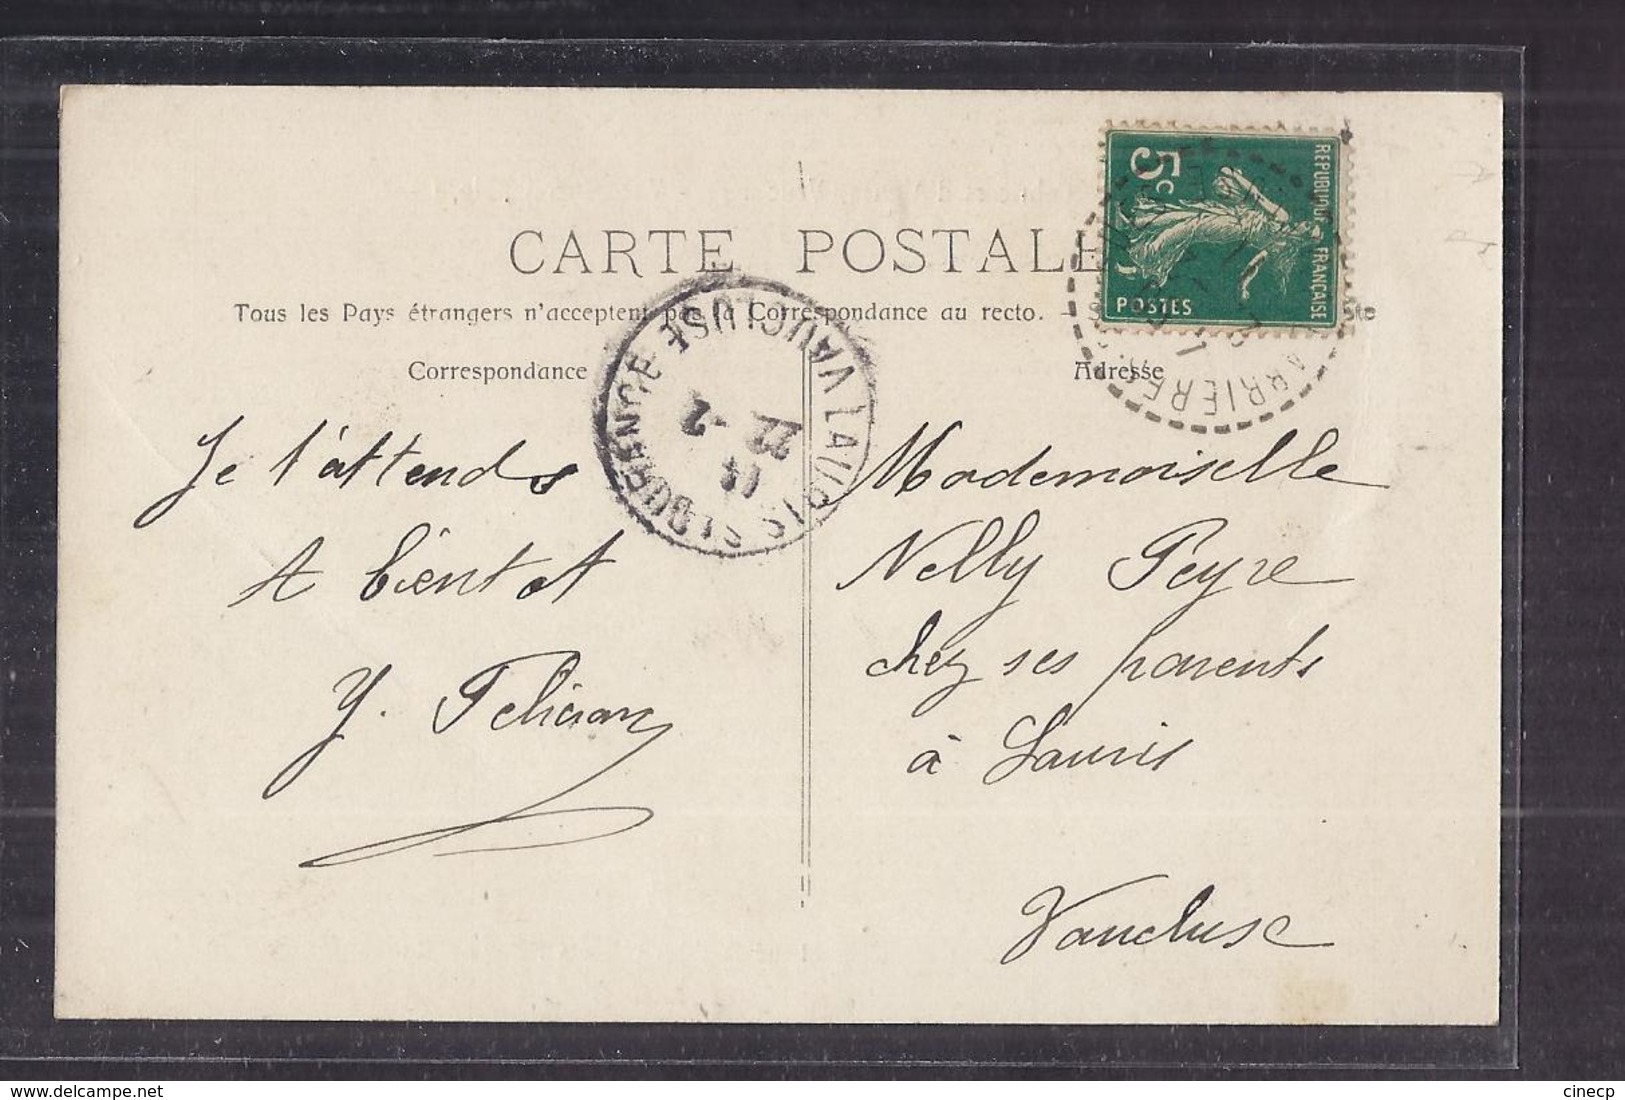 CARTE POSTALE
Tous les Pays étrangers n'acceptent pas la Correspondance au recto. -
Correspondance
Adresse
5c
REPUBLIQUE FRANÇAISE
POSTES
LAURIS
VAUCLUSE
22 -2
11
Je t'attends
A bientot
Y. Felician
Mademoiselle
Nelly Peyre
chez ses parents
à Lauris
Vaucluse
cinecp